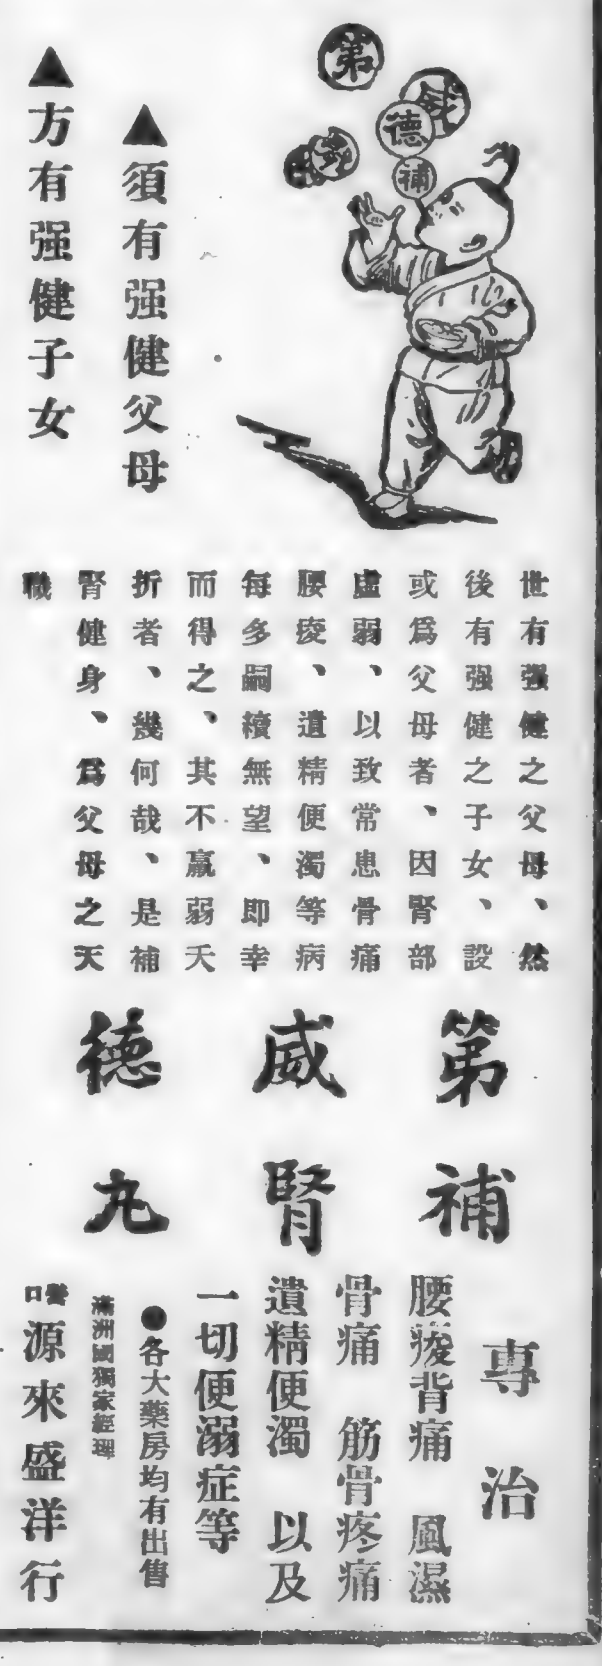 弟威德補
▲須有强健父母
▲方有强健子女
世有强健之父母、然
後有强健之子女、設
或爲父母者、因腎部
虛弱、以致常患骨痛
腰痠、遺精便濁等病
每多嗣續無望、即幸
而得之、其不羸弱夭
折者、幾何哉、是補
腎健身、爲父母之天
職
第威德
補腎丸
專治
腰痠背痛 風濕
骨痛 筋骨疼痛
遺精便濁 以及
一切便溺症等
●各大藥房均有出售
滿洲國獨家經理
營口 源來盛洋行